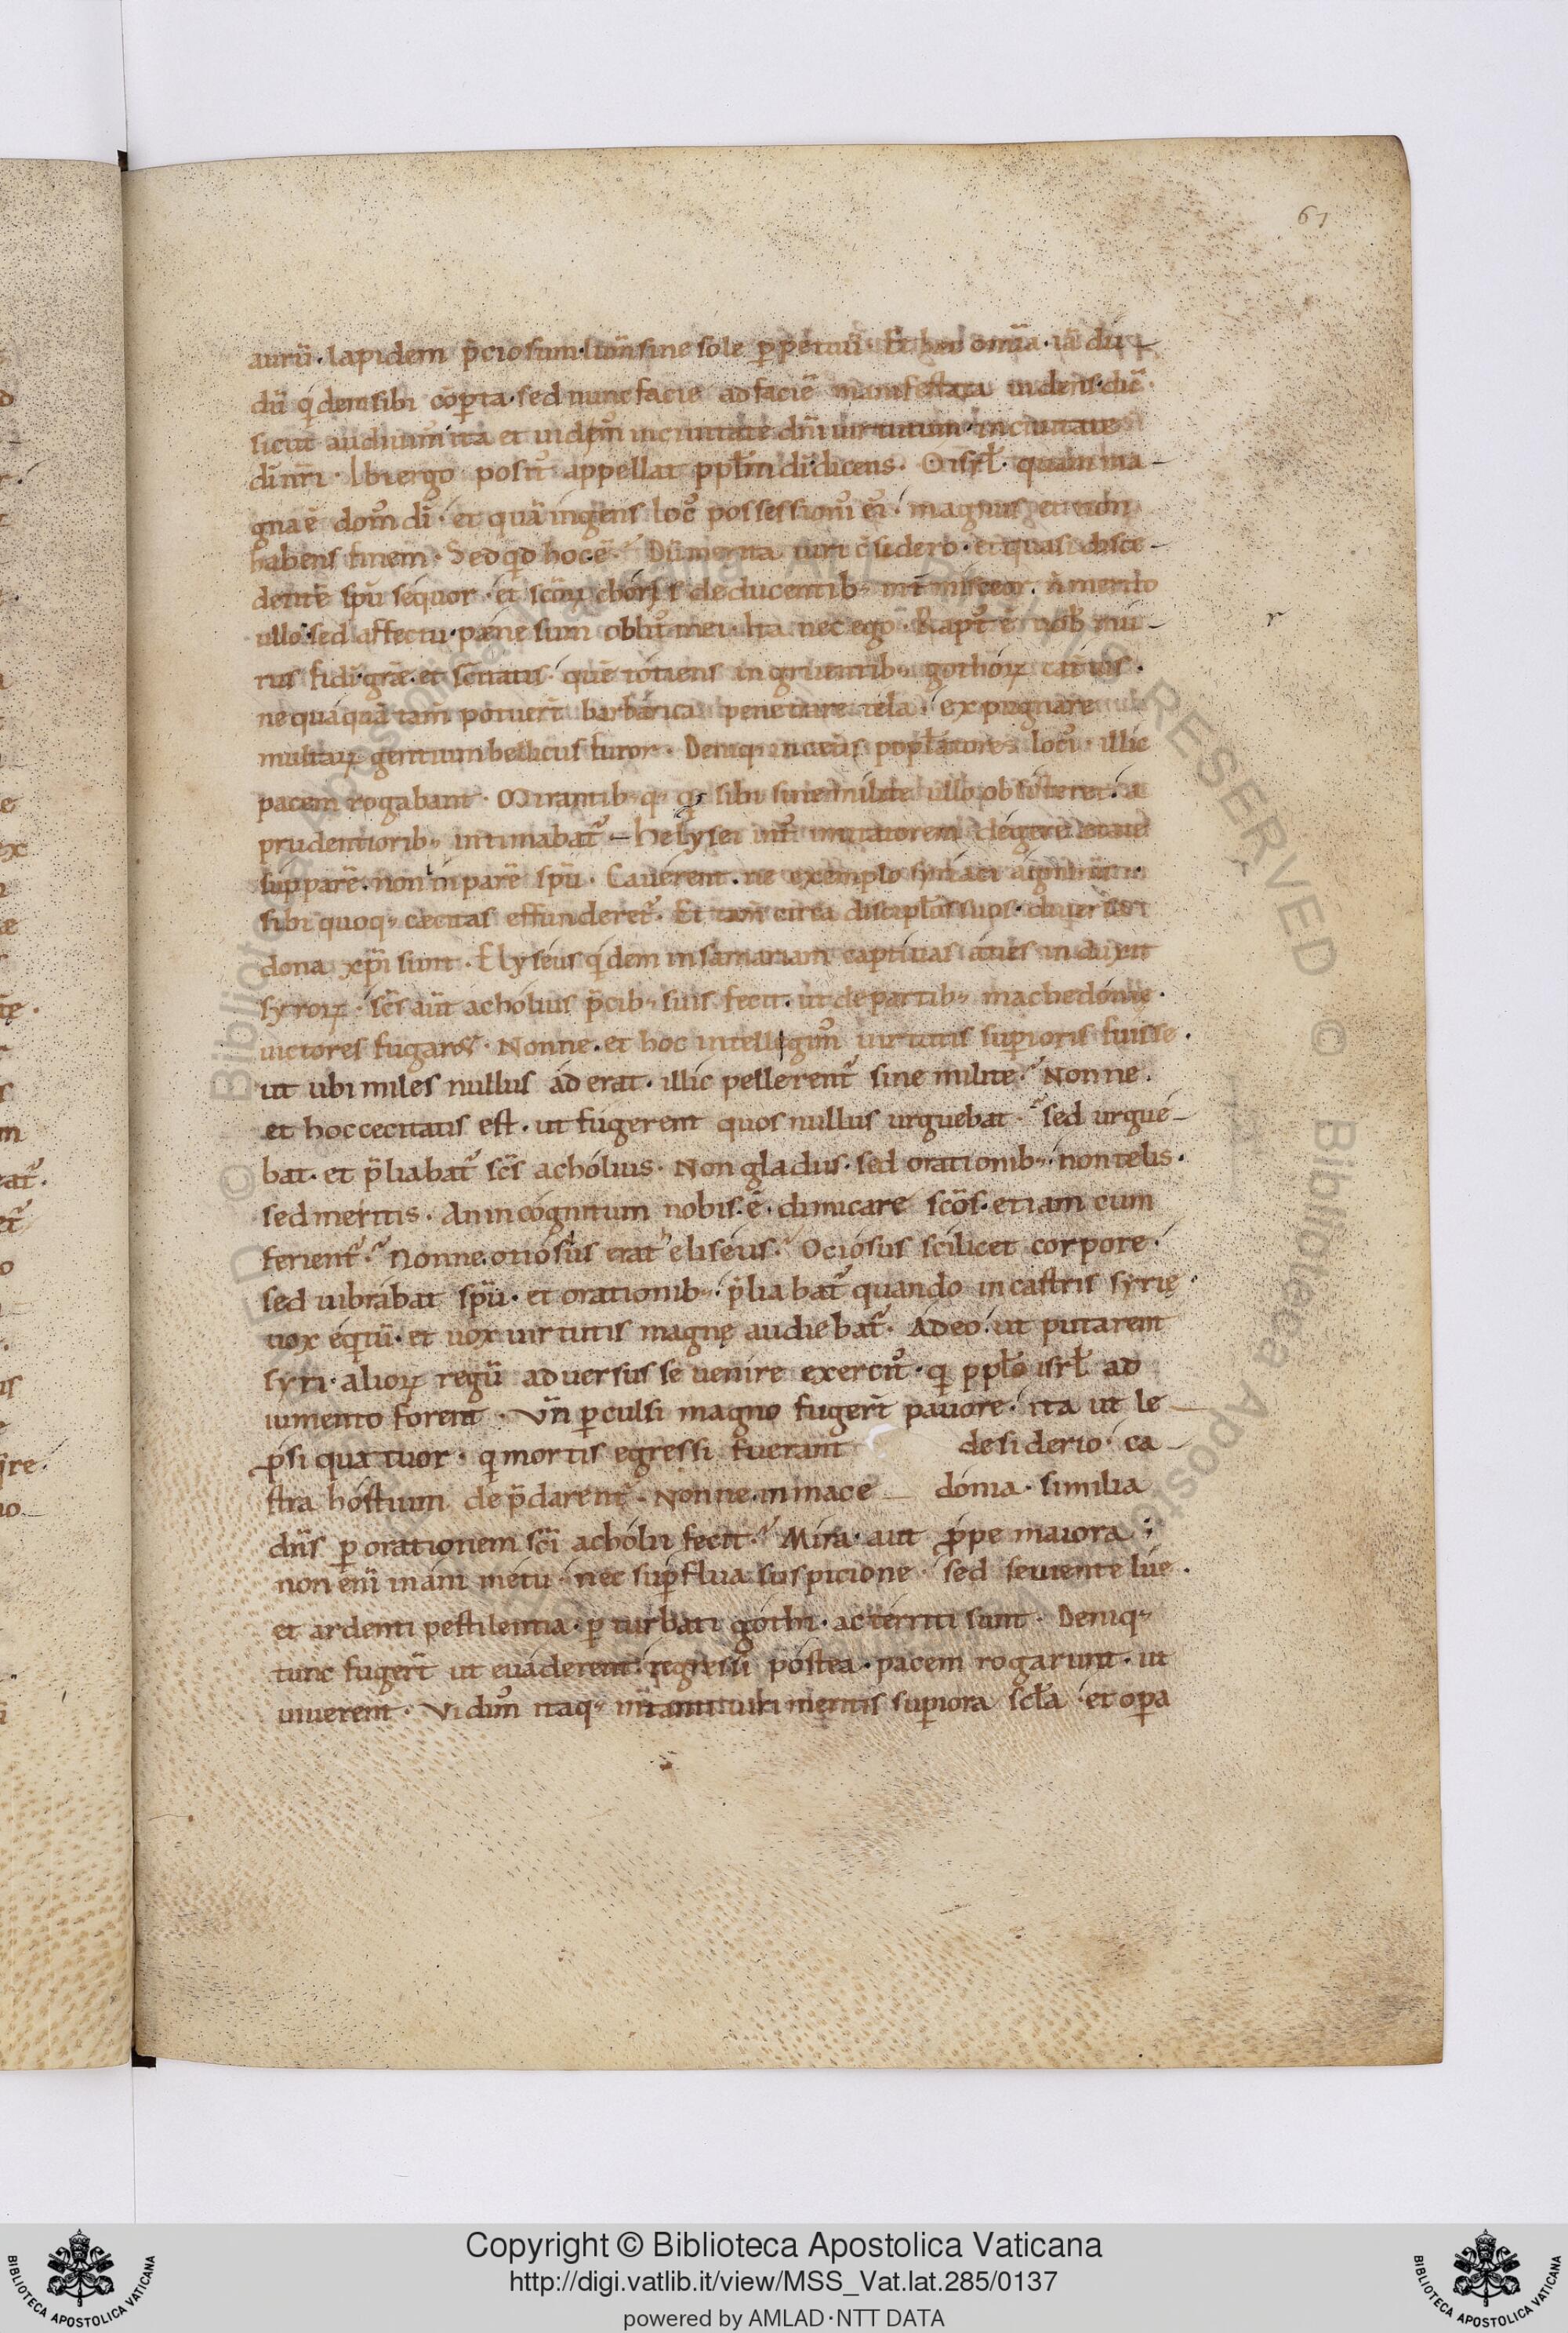 61
aurū · lapidem p̄ciosum · lum̄ sine sole ꝑpetuū · Et hec om̄ia · iā du-
dū q̇dem sibi cōꝑta · sed nunc facie ad faciē manifestata uidens · dič
sicut audiuim᷒ ita et uidim᷒ in ciuitate dn̄i uirtutum · in ciuitate
di nr̄i · Ibi ergo posit᷒ appellat ppłm di dicens · O isrł · quam ma-
gna ē dom᷒ di · et quā ingens loc᷒ possessionis ei᷒ · magnus et non
habens finem · Sed qd hoc ē · Dū merita uiri c̄sidero · et quasi disce-
dentē spū sequor · et sc̄oꝝ choris deducentib; int̄ misceor · n̄ merito
ullo sed affectu · pæne sum oblit᷒ mei · Ita nec ego · Rapt᷒ ē nob̄ mu-
rus fidei græ · et sc̄itatis · quē totiens ingruentib; gothoꝝ cateruis ·
nequaquā tam̄ potuer̄t barbarica penetrare tela · expugnare
multaꝝ gentium bellicus furor · Deniq;        popłatores loc᷒ · illic
pacem rogabant · Mirantib; q; q̇s sibi sine milite ullo obsisteret · a
prudentiorib; intimabat᷒ - helysei int᷒ imitatorem degere etate
supparē · non inparē spū · Cauerent · ne exemplo syriaci agminis ·
sibi quoq; cæcitas effunderet᷒ · Et tam̄ circa discipłos suos · diuersa
dona xp̄i sunt · Elyseus q̇dem in samariam captiuas acies induxit
syroꝝ · sc̄s aūt acholius p̄cib; suis fecit · ut de partib; machedonie ·
uictores fugaret · Nonne · et hoc intellegim᷒ uirtutis supioris fuisse ·
ut ubi miles nullus aderat · illic pellerent᷒ sine milite · Nonne ·
et hoc cecitatis est · ut fugerent quos nullus urguebat · sed urgue-
bat · et p̄liabat᷒ sc̄s acholius · Non gladiis · sed orationib; · non telis ·
sed meritis · An incognitum nobis · ē · dimicare sc̄os · etiam cum
ferient᷒ · Nonne · otiosus erat eliseus · Ociosus scilicet corpore ·
sed uibrabat spū · et orationib; · p̄liabat᷒ quando in castris syrię ·
uox equitū · et uox uirtutis magnę audiebat᷒ · Adeo · ut putarent
syri · alioꝝ regū aduersus se uenire exercit᷒ · q̇ p ppło isrł ad
iumento forent · Vn̄ ꝑculsi magno fuger̄t pauore · ita ut le-
ꝓsi quatuor · q̇ mortis egressi fuerant desiderio · ca-
stra hostium dep̄darent᷒ · Nonne · in mace- donia · similia
dn̄s ꝑ orationem sc̄i acholii fecit · Mira · aut ꝓpe maiora ·
non eni inani metu · nec supflua suspicione · sed seuiente lue ·
et ardenti pestilentia · ꝑturbati gothi · ac territi sunt · Deniq;
tunc fuger̄t ut euaderent · regressi postea · pacem rogarunt · ut
uiuerent · Vidim᷒ itaq; in tanti uiri meritis supiora scła · et opa
r
Copyright © Biblioteca Apostolica Vaticana
http://digi.vatlib.it/view/MSS_Vat.lat.285/0137
powered by AMLAD·NTT DATA
BIBLIOTECA APOSTOLICA VATICANA
BIBLIOTECA APOSTOLICA VATICANA